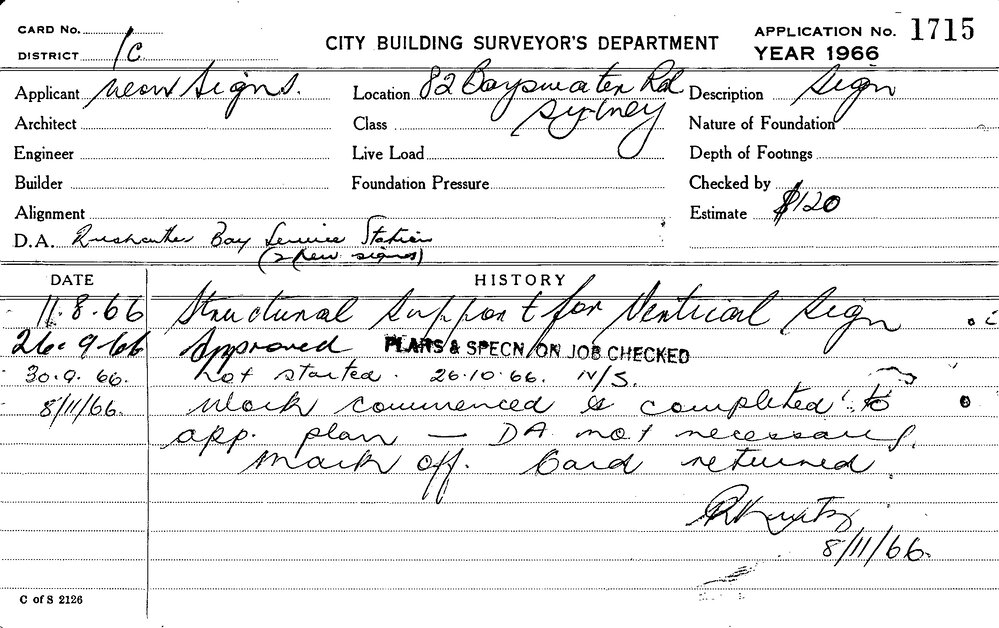 CARD No.
DISTRICT 1C
CITY BUILDING SURVEYOR'S DEPARTMENT
APPLICATION No. 1715
YEAR 1966
Applicant Neon Signs.
Location 82 Bayswater Rd
Sydney
Description Sign
Architect
Class
Nature of Foundation
Engineer
Live Load
Depth of Footings
Builder
Foundation Pressure
Checked by
Alignment
Estimate $120
D.A. Rushcutter Bay Service Station
(2 new signs)
DATE HISTORY
11.8.66 Structural support for Vertical Sign
26.9.66 Approved PLANS & SPECN. ON JOB CHECKED
30.9.66. Not started. 26.10.66. N/S.
8/11/66. Work commenced & completed to
app. plan — DA not necessary.
Mark off. Card returned
8/11/66.
C of S 2126